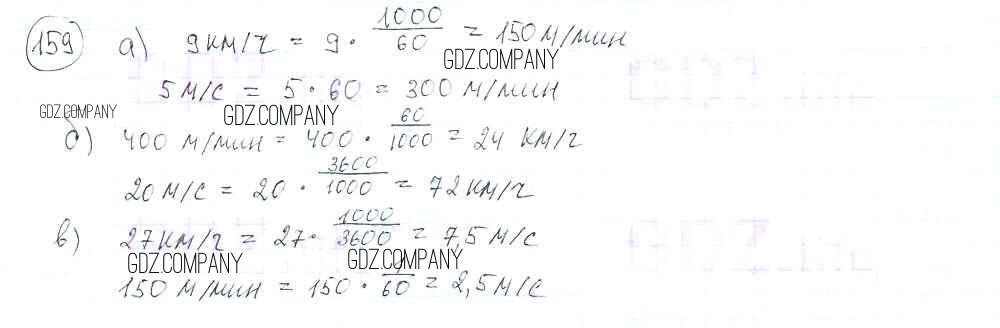 159 а) 9 км/ч = 9 · 1000/60 = 150 м/мин
GDZ.COMPANY
5 м/с = 5 · 60 = 300 м/мин
GDZ.COMPANY GDZ.COMPANY
б) 400 м/мин = 400 · 60/1000 = 24 км/ч
20 м/с = 20 · 3600/1000 = 72 км/ч
в) 27 км/ч = 27 · 1000/3600 = 7,5 м/с
GDZ.COMPANY GDZ.COMPANY
150 м/мин = 150 · 1/60 = 2,5 м/с